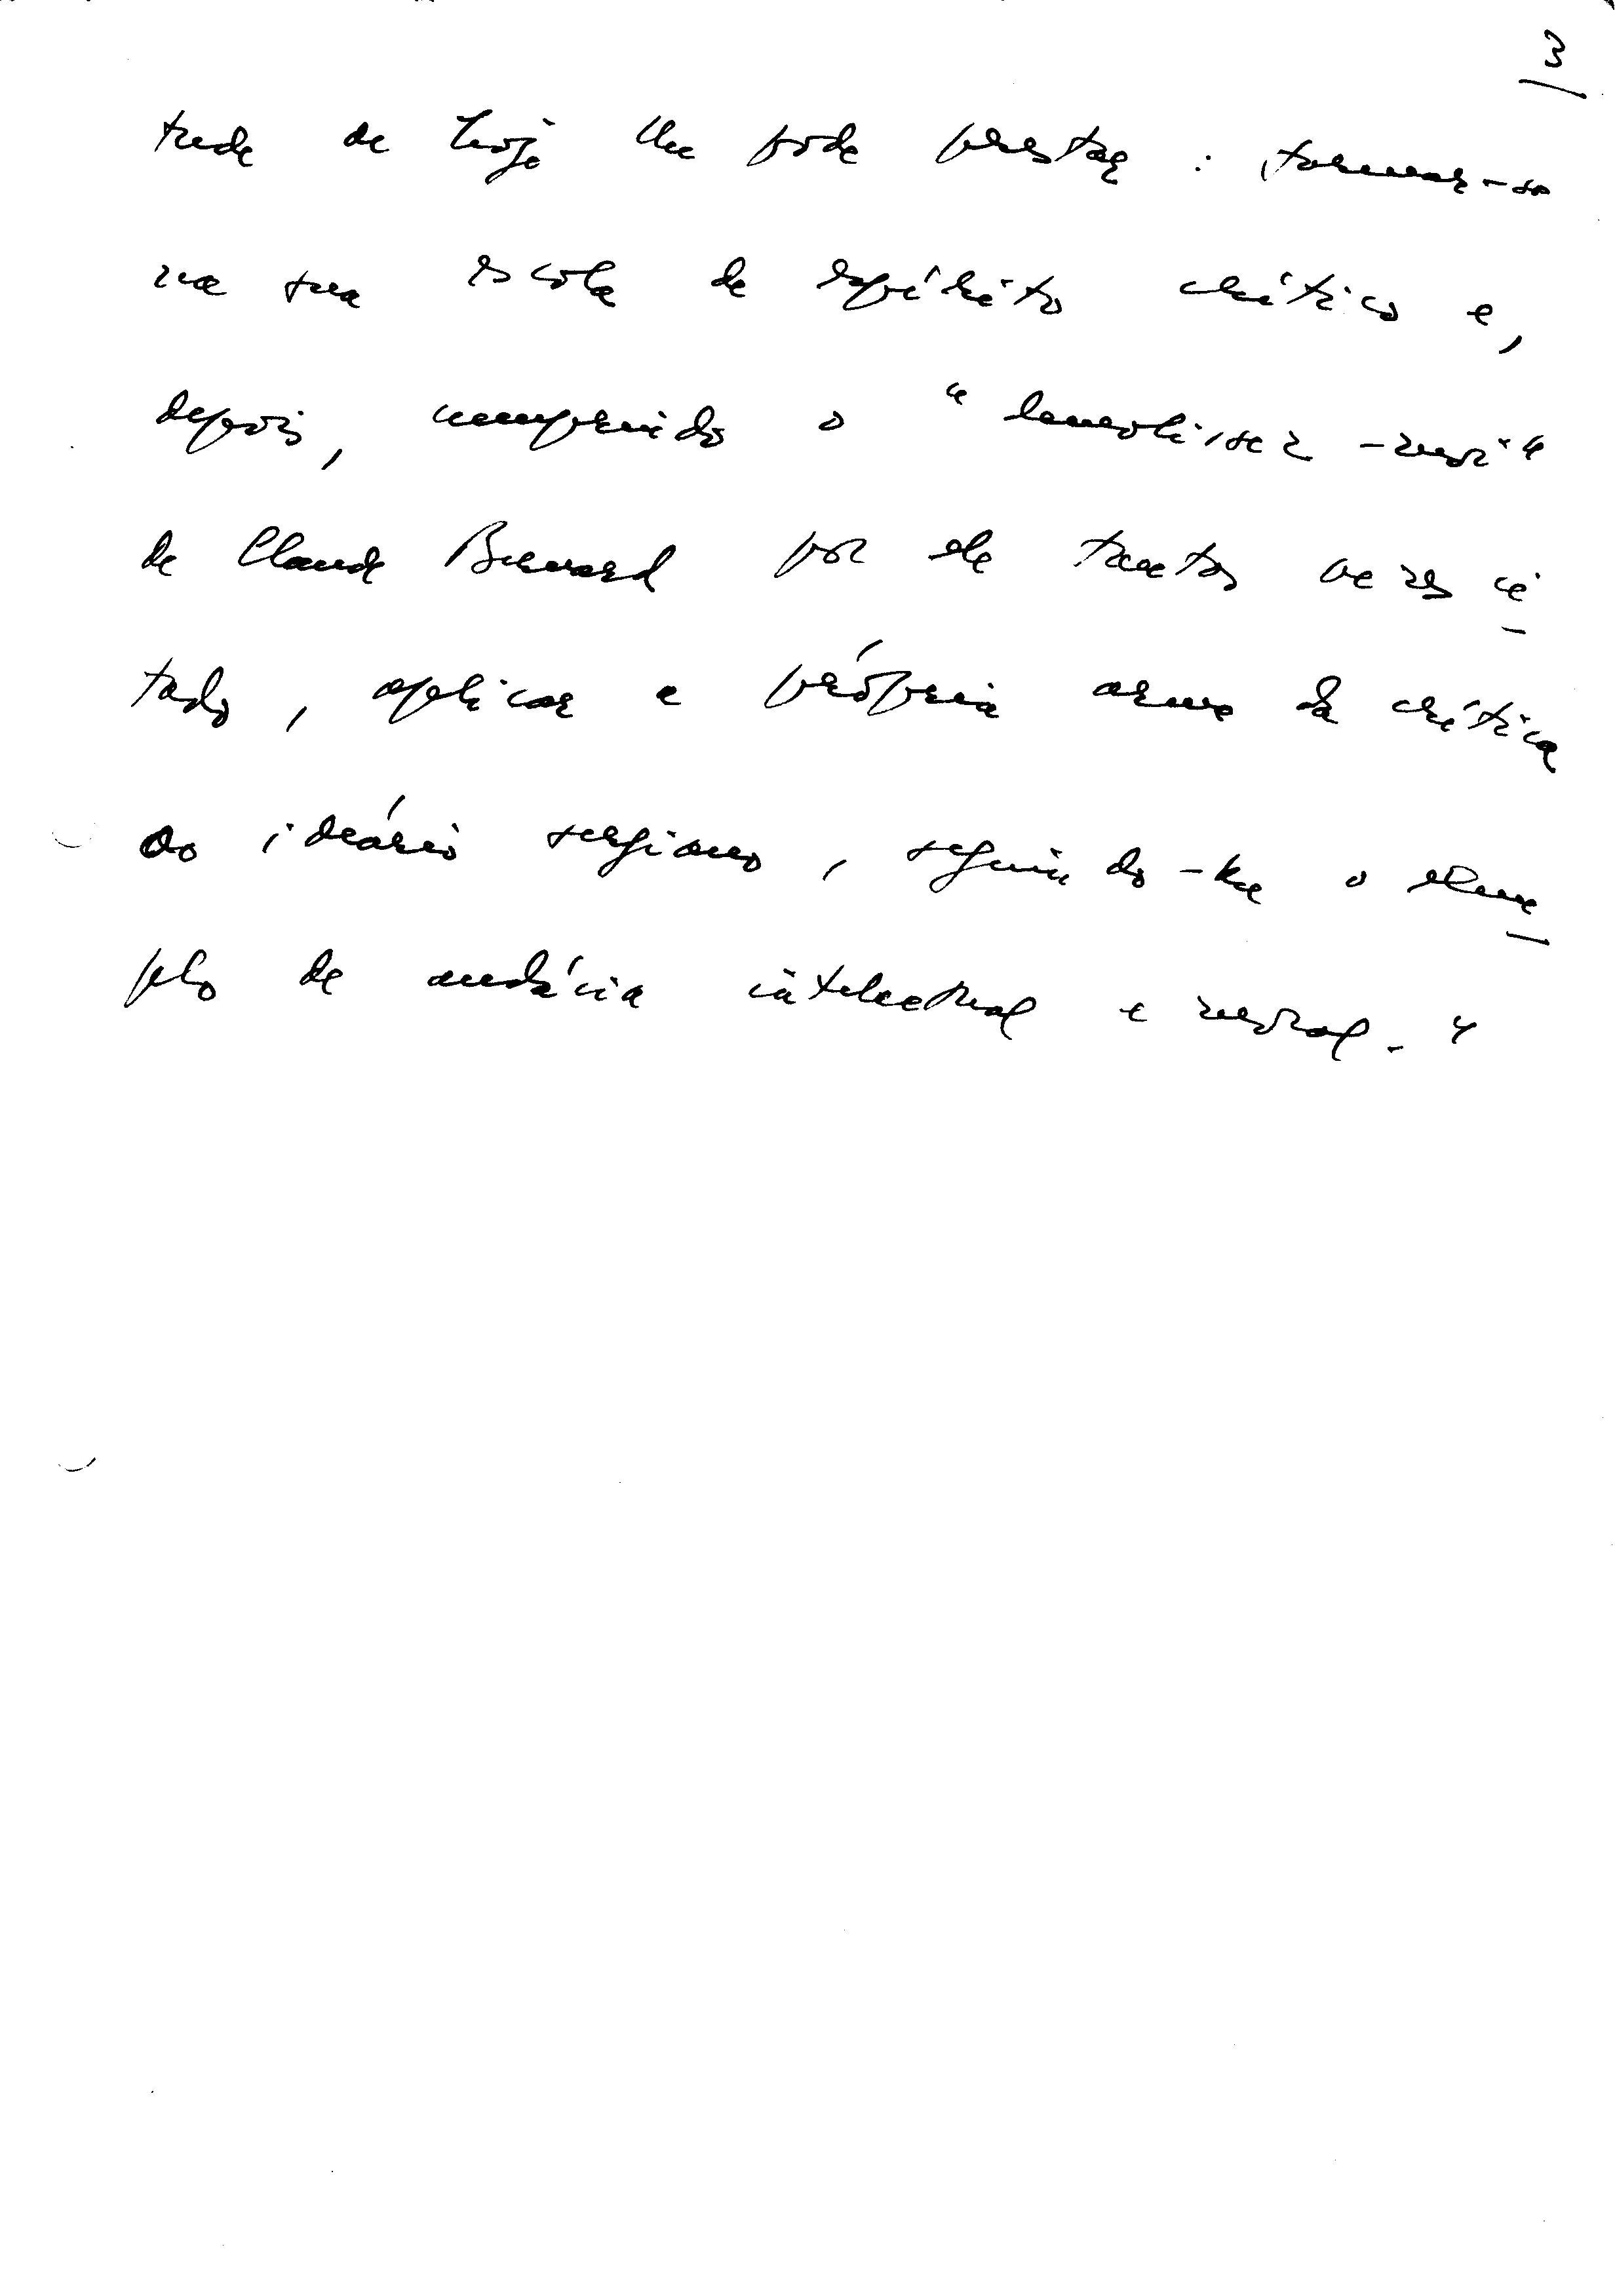 3
tude de hoje lhe pode prestar: formar-se
na sua escola de espírito crítico e,
depois, cumprindo o "démolissez-moi"
de Claude Bernard por ele tantas vezes ci
tado, aplicar a própria arma da crítica
ao ideário sergiano, seguindo-lhe o exem
plo de audácia intelectual e moral."